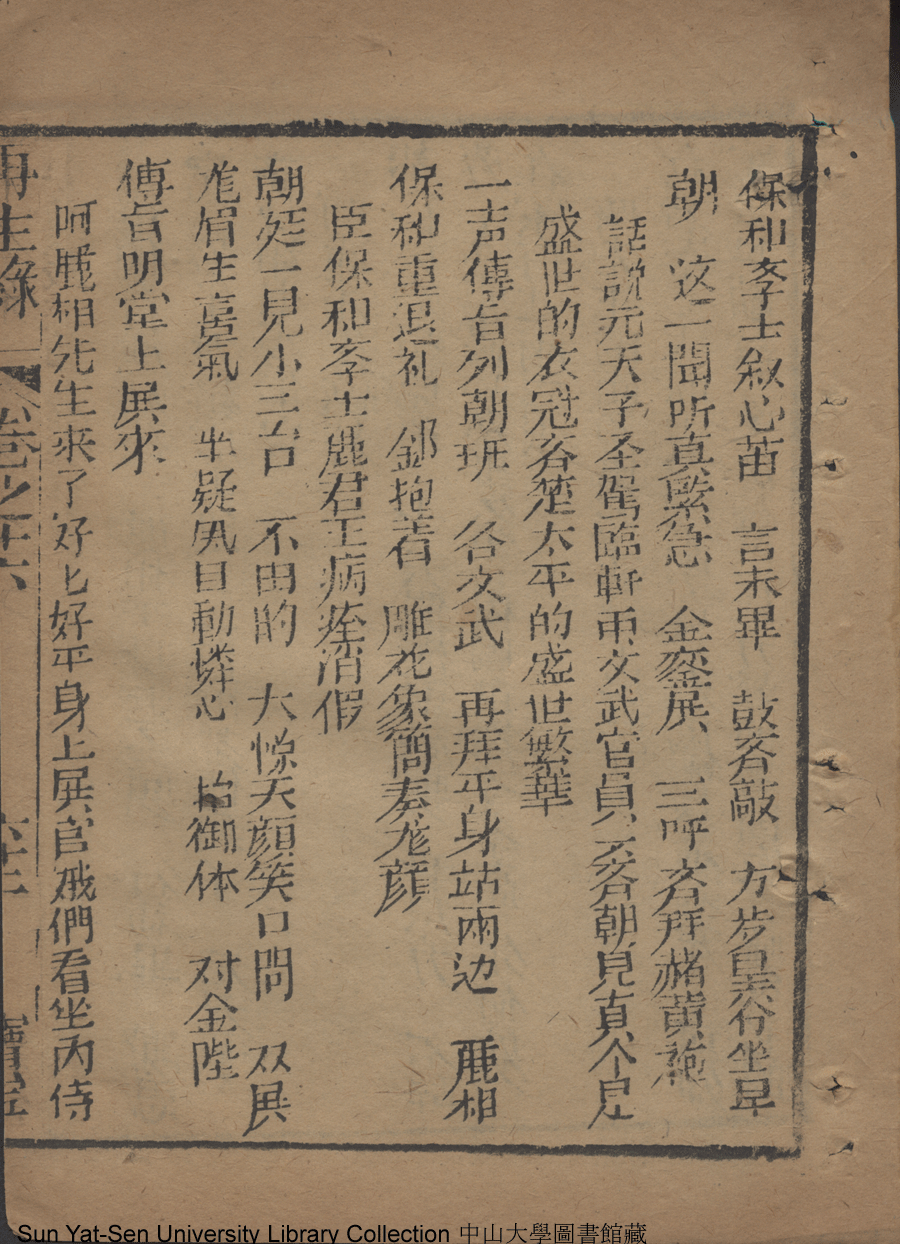 保和李士叙心苗 言未畢 鼓咨敲 方步 坐早
朝 这一聞所真緊急 金銮展 三呼咨拜赭黄袍
話説元天子圣駕臨軒兩文武官員 咨朝見真个是
盛世的衣冠咨楚太平的盛世繁華
一声傳旨列朝班 各文武 再拜平身站兩边 麗相
保和重退礼 鄧抱着 雕花象簡奏尨顔
臣保和李士麗君王病痊消假
朝廷一見小三台 不由的 大惊天顔笑口問 双展
尨眉生喜氣 坐疑 目動憐心 抬御体 对金陛
傳旨明堂上展來
呵麗相先生来了好匕好平身上展官 們看坐内侍
再生錄 卷之十六 六十二
Sun Yat-Sen University Library Collection 中山大學圖書館藏